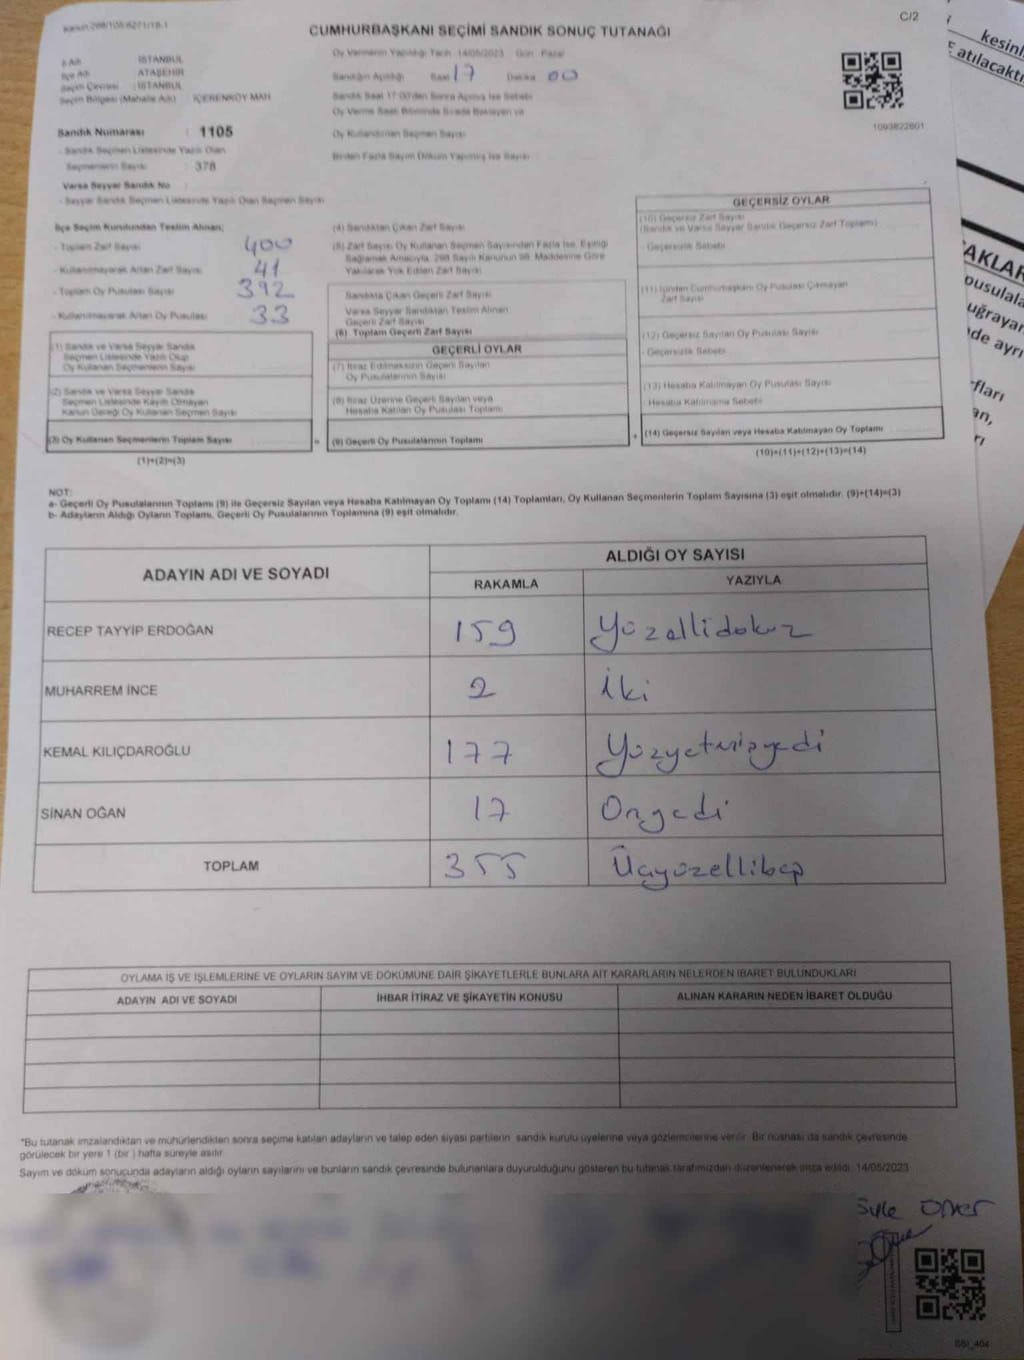 C/2
CUMHURBAŞKANI SEÇİMİ SANDIK SONUÇ TUTANAĞI
İl Adı : İSTANBUL
İlçe Adı : ATAŞEHİR
Seçim Çevresi : İSTANBUL
Seçim Bölgesi (Mahalle Adı) : İÇERENKÖY MAH
Sandık Numarası : 1105
- Sandık Seçmen Listesinde Yazılı Olan
Seçmenlerin Sayısı : 378
Varsa Seyyar Sandık No :
- Seyyar Sandık Seçmen Listesinde Yazılı Olan Seçmen Sayısı
Oy Vermenin Yapıldığı Tarih 14/05/2023 Gün Pazar
Sandığın Açıldığı Saat 17 Dakika 00
Sandık Saat 17:00'den Sonra Açılmış İse Sebebi
Oy Verme Saati Bitiminde Sırada Bekleyen ve
Oy Kullandırılan Seçmen Sayısı
Birden Fazla Sayım Döküm Yapılmış İse Sayısı
1093822601
İlçe Seçim Kurulundan Teslim Alınan;
- Toplam Zarf Sayısı 400
- Kullanılmayarak Artan Zarf Sayısı 41
- Toplam Oy Pusulası Sayısı 392
- Kullanılmayarak Artan Oy Pusulası 33
(1) Sandık ve Varsa Seyyar Sandık
Seçmen Listesinde Yazılı Olup
Oy Kullanan Seçmenlerin Sayısı
(2) Sandık ve Varsa Seyyar Sandık
Seçmen Listesinde Kayıtlı Olmayan
Kanun Gereği Oy Kullanan Seçmen Sayısı
(3) Oy Kullanan Seçmenlerin Toplam Sayısı
(1)+(2)=(3)
(4) Sandıktan Çıkan Zarf Sayısı
(5) Zarf Sayısı Oy Kullanan Seçmen Sayısından Fazla İse, Eşitliği
Sağlamak Amacıyla, 298 Sayılı Kanunun 98. Maddesine Göre
Yakılarak Yok Edilen Zarf Sayısı
Sandıkta Çıkan Geçerli Zarf Sayısı
Varsa Seyyar Sandıktan Teslim Alınan
Geçerli Zarf Sayısı
(6) Toplam Geçerli Zarf Sayısı
GEÇERLİ OYLAR
(7) İtiraz Edilmeksizin Geçerli Sayılan
Oy Pusulalarının Sayısı
(8) İtiraz Üzerine Geçerli Sayılan veya
Hesaba Katılan Oy Pusulası Toplamı
= (9) Geçerli Oy Pusulalarının Toplamı
GEÇERSİZ OYLAR
(10) Geçersiz Zarf Sayısı
(Sandık ve Varsa Seyyar Sandık Geçersiz Zarf Toplamı)
- Geçersizlik Sebebi
(11) İçinden Cumhurbaşkanı Oy Pusulası Çıkmayan
Zarf Sayısı
(12) Geçersiz Sayılan Oy Pusulası Sayısı
- Geçersizlik Sebebi
(13) Hesaba Katılmayan Oy Pusulası Sayısı
- Hesaba Katılmama Sebebi
+ (14) Geçersiz Sayılan veya Hesaba Katılmayan Oy Toplamı
(10)+(11)+(12)+(13)=(14)
NOT:
a- Geçerli Oy Pusulalarının Toplamı (9) ile Geçersiz Sayılan veya Hesaba Katılmayan Oy Toplamı (14) Toplamları, Oy Kullanan Seçmenlerin Toplam Sayısına (3) eşit olmalıdır. (9)+(14)=(3)
b- Adayların Aldığı Oyların Toplamı, Geçerli Oy Pusulalarının Toplamına (9) eşit olmalıdır.
ADAYIN ADI VE SOYADI
ALDIĞI OY SAYISI
RAKAMLA YAZIYLA
RECEP TAYYİP ERDOĞAN 159 Yüzellidokuz
MUHARREM İNCE 2 İki
KEMAL KILIÇDAROĞLU 177 Yüzyetmişyedi
SİNAN OĞAN 17 Onyedi
TOPLAM 355 Üçyüzellibeş
OYLAMA İŞ VE İŞLEMLERİNE VE OYLARIN SAYIM VE DÖKÜMÜNE DAİR ŞİKAYETLERLE BUNLARA AİT KARARLARIN NELERDEN İBARET BULUNDUKLARI
ADAYIN ADI VE SOYADI İHBAR İTİRAZ VE ŞİKAYETİN KONUSU ALINAN KARARIN NEDEN İBARET OLDUĞU
*Bu tutanak imzalandıktan ve mühürlendikten sonra seçime katılan adayların ve talep eden siyasi partilerin sandık kurulu üyelerine veya gözlemcilerine verilir. Bir nüshası da sandık çevresinde
görülecek bir yere 1 (bir) hafta süreyle asılır.
Sayım ve döküm sonucunda adayların aldığı oyların sayılarını ve bunların sandık çevresinde bulunanlara duyurulduğunu gösteren bu tutanak tarafımızdan düzenlenerek imza edildi. 14/05/2023
kesinl
E atılacaktı
AKLAR
pusulala
uğrayar
de ayrı
rfları
an,
rı